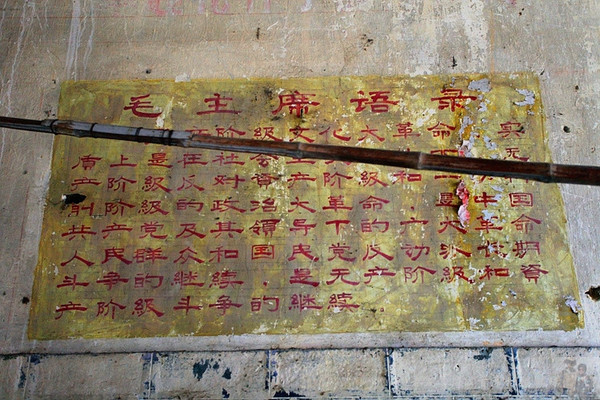 毛主席语录
阶级文化大革命 实
质上是在社会 无
产阶级反对资产阶级和一
削阶级的政治大革命 中国
共产党及其领导下的 革命
人民群众和国民党反动派 期
斗争的继续,是无产阶级和资
产阶级斗争的继续